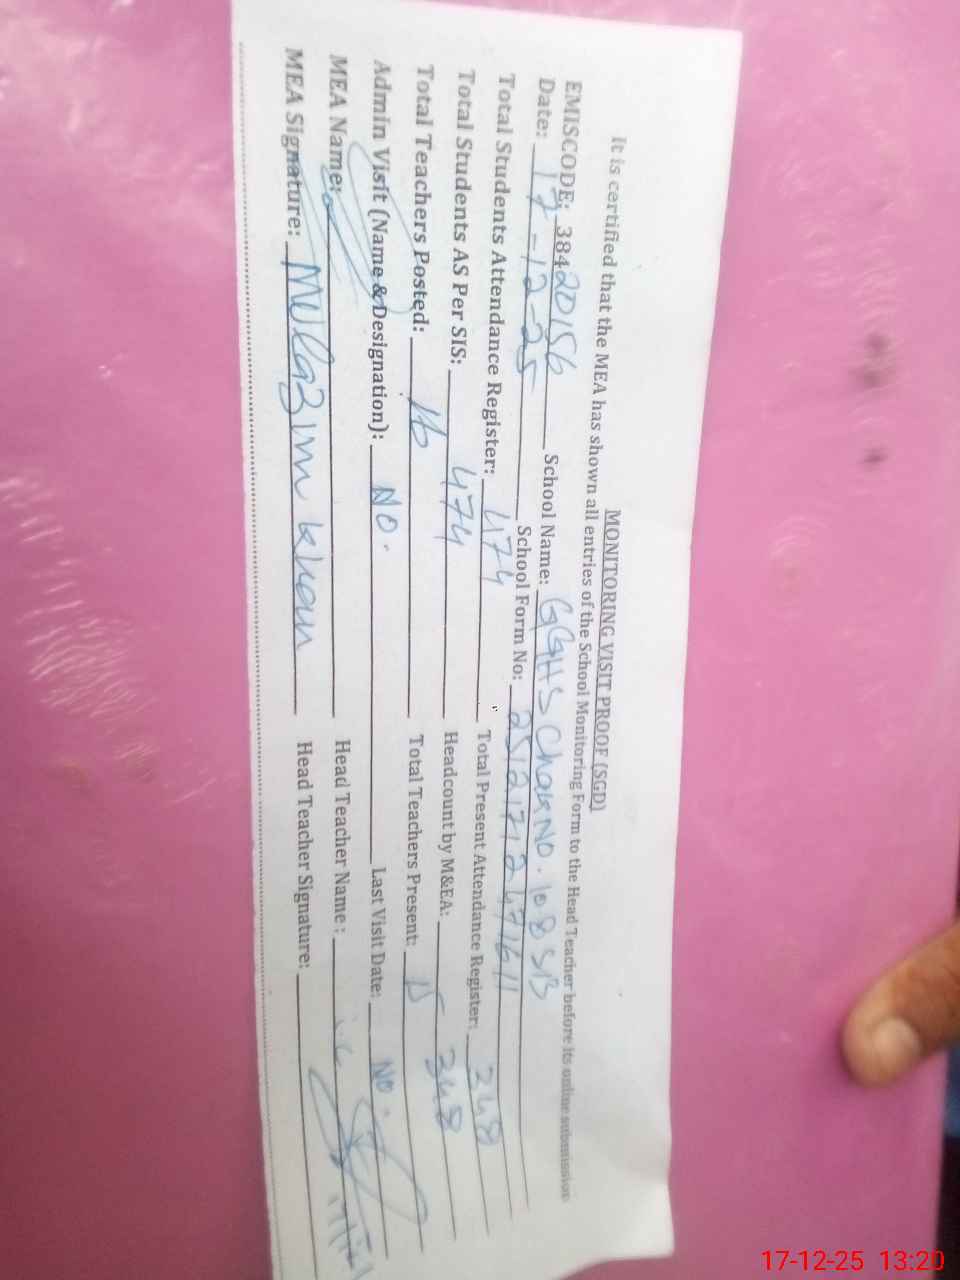 MONITORING VISIT PROOF (SGD)
It is certified that the MEA has shown all entries of the School Monitoring Form to the Head Teacher before its online submission
EMISCODE: 38420156 School Name: GGHS Chak NO. 108 SB
Date: 17-12-25 School Form No:
Total Students Attendance Register: 474 Total Present Attendance Register: 348
Total Students AS Per SIS: 474 Headcount by M&EA: 348
Total Teachers Posted: 16 Total Teachers Present: 15
Admin Visit (Name & Designation): NO. Last Visit Date: NO.
MEA Name: Head Teacher Name :
MEA Signature: Mulazim khan Head Teacher Signature:
17-12-25 13:20